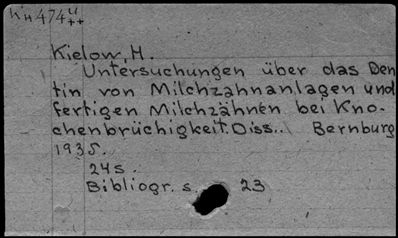 Kielow, H.
Untersuchungen über das Den
tin von Milchzahnanlagen und
fertigen Milchzähnen bei Kno-
chenbrüchigkeit. Diss.. Bernburg
1935.
24 s.
Bibliogr. s. 23